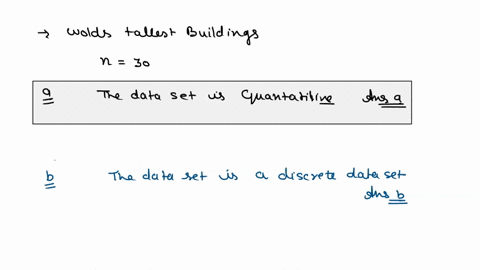 → wolds tallest Buildings
n = 30
a The data set is Quantatitive Ans a
b The data set is a discrete data set
Ans b